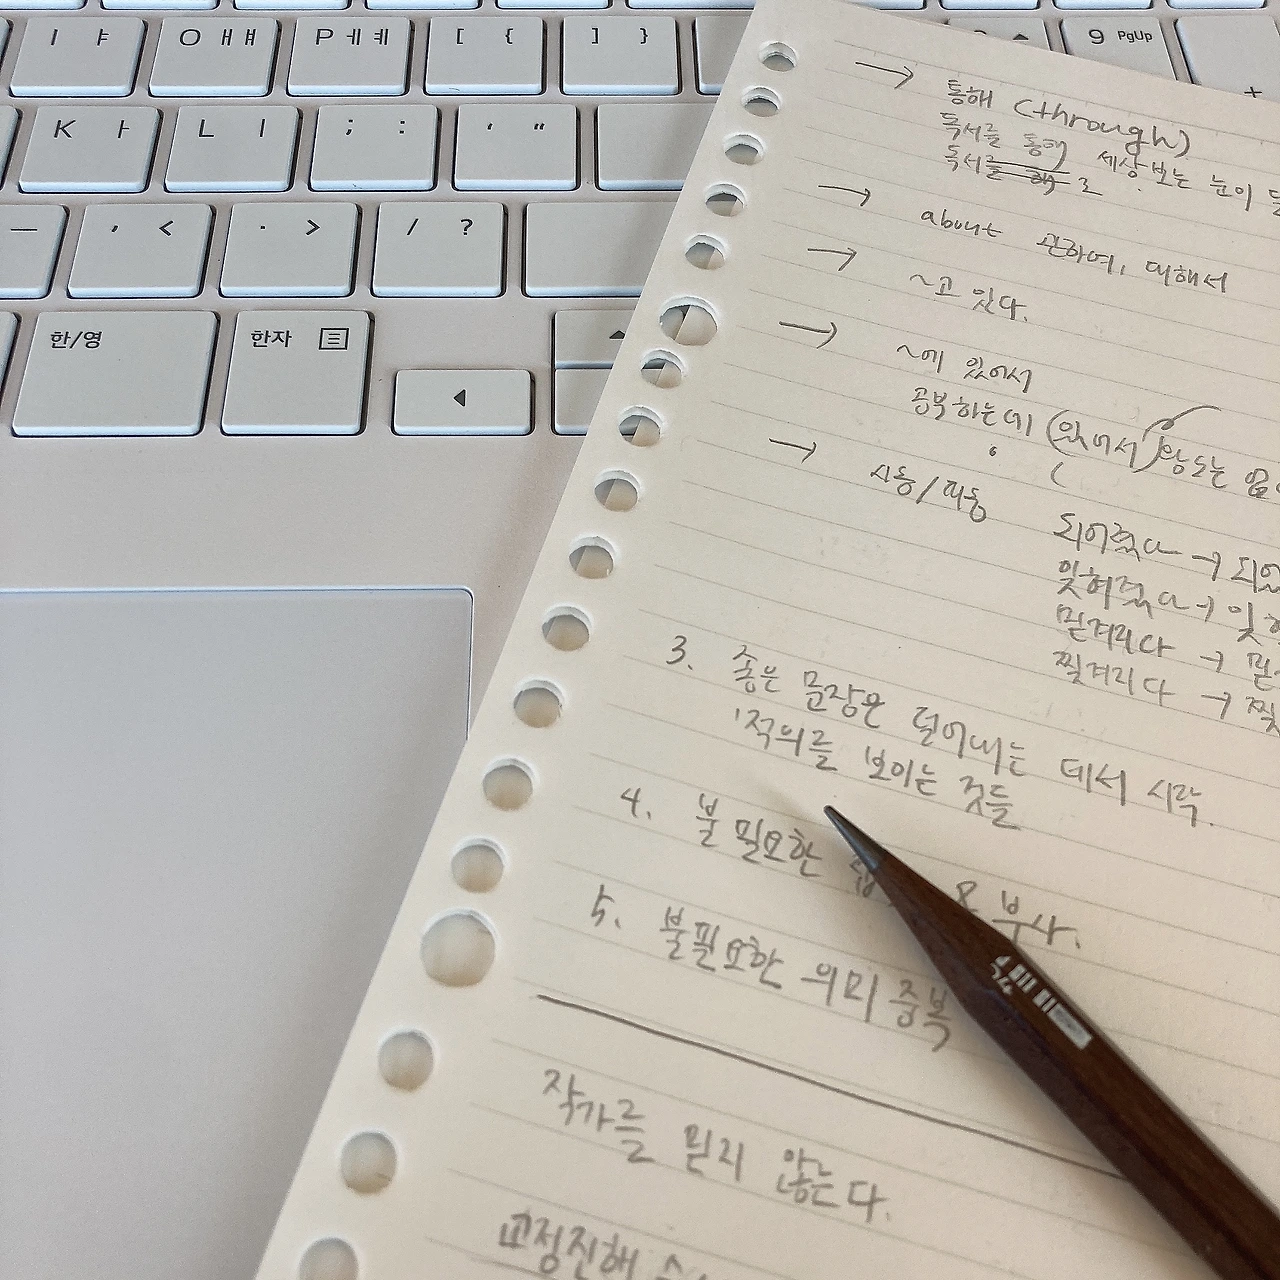 I ㅑ
O ㅐ ㅒ
P ㅔ ㅖ
[ {
] }
9 PgUp
+
K ㅏ
L ㅣ
; :
' "
, <
. >
/ ?
한/영
한자
→ 통해 (through)
독서를 통해 세상 보는 눈이
독서를 해 로
→ about 관하여, 대해서
→ ~고 있다.
→ ~에 있어서
공부하는데 (있어서)
→ 사동/피동 되어졌다 →
잊혀졌다 →
믿겨지다 →
찢겨지다 →
3. 좋은 문장은 덜어내는 데서 시작.
'적의를 보이는 것들
4. 불필요한 부사.
5. 불필요한 의미 중복
작가를 믿지 않는다.